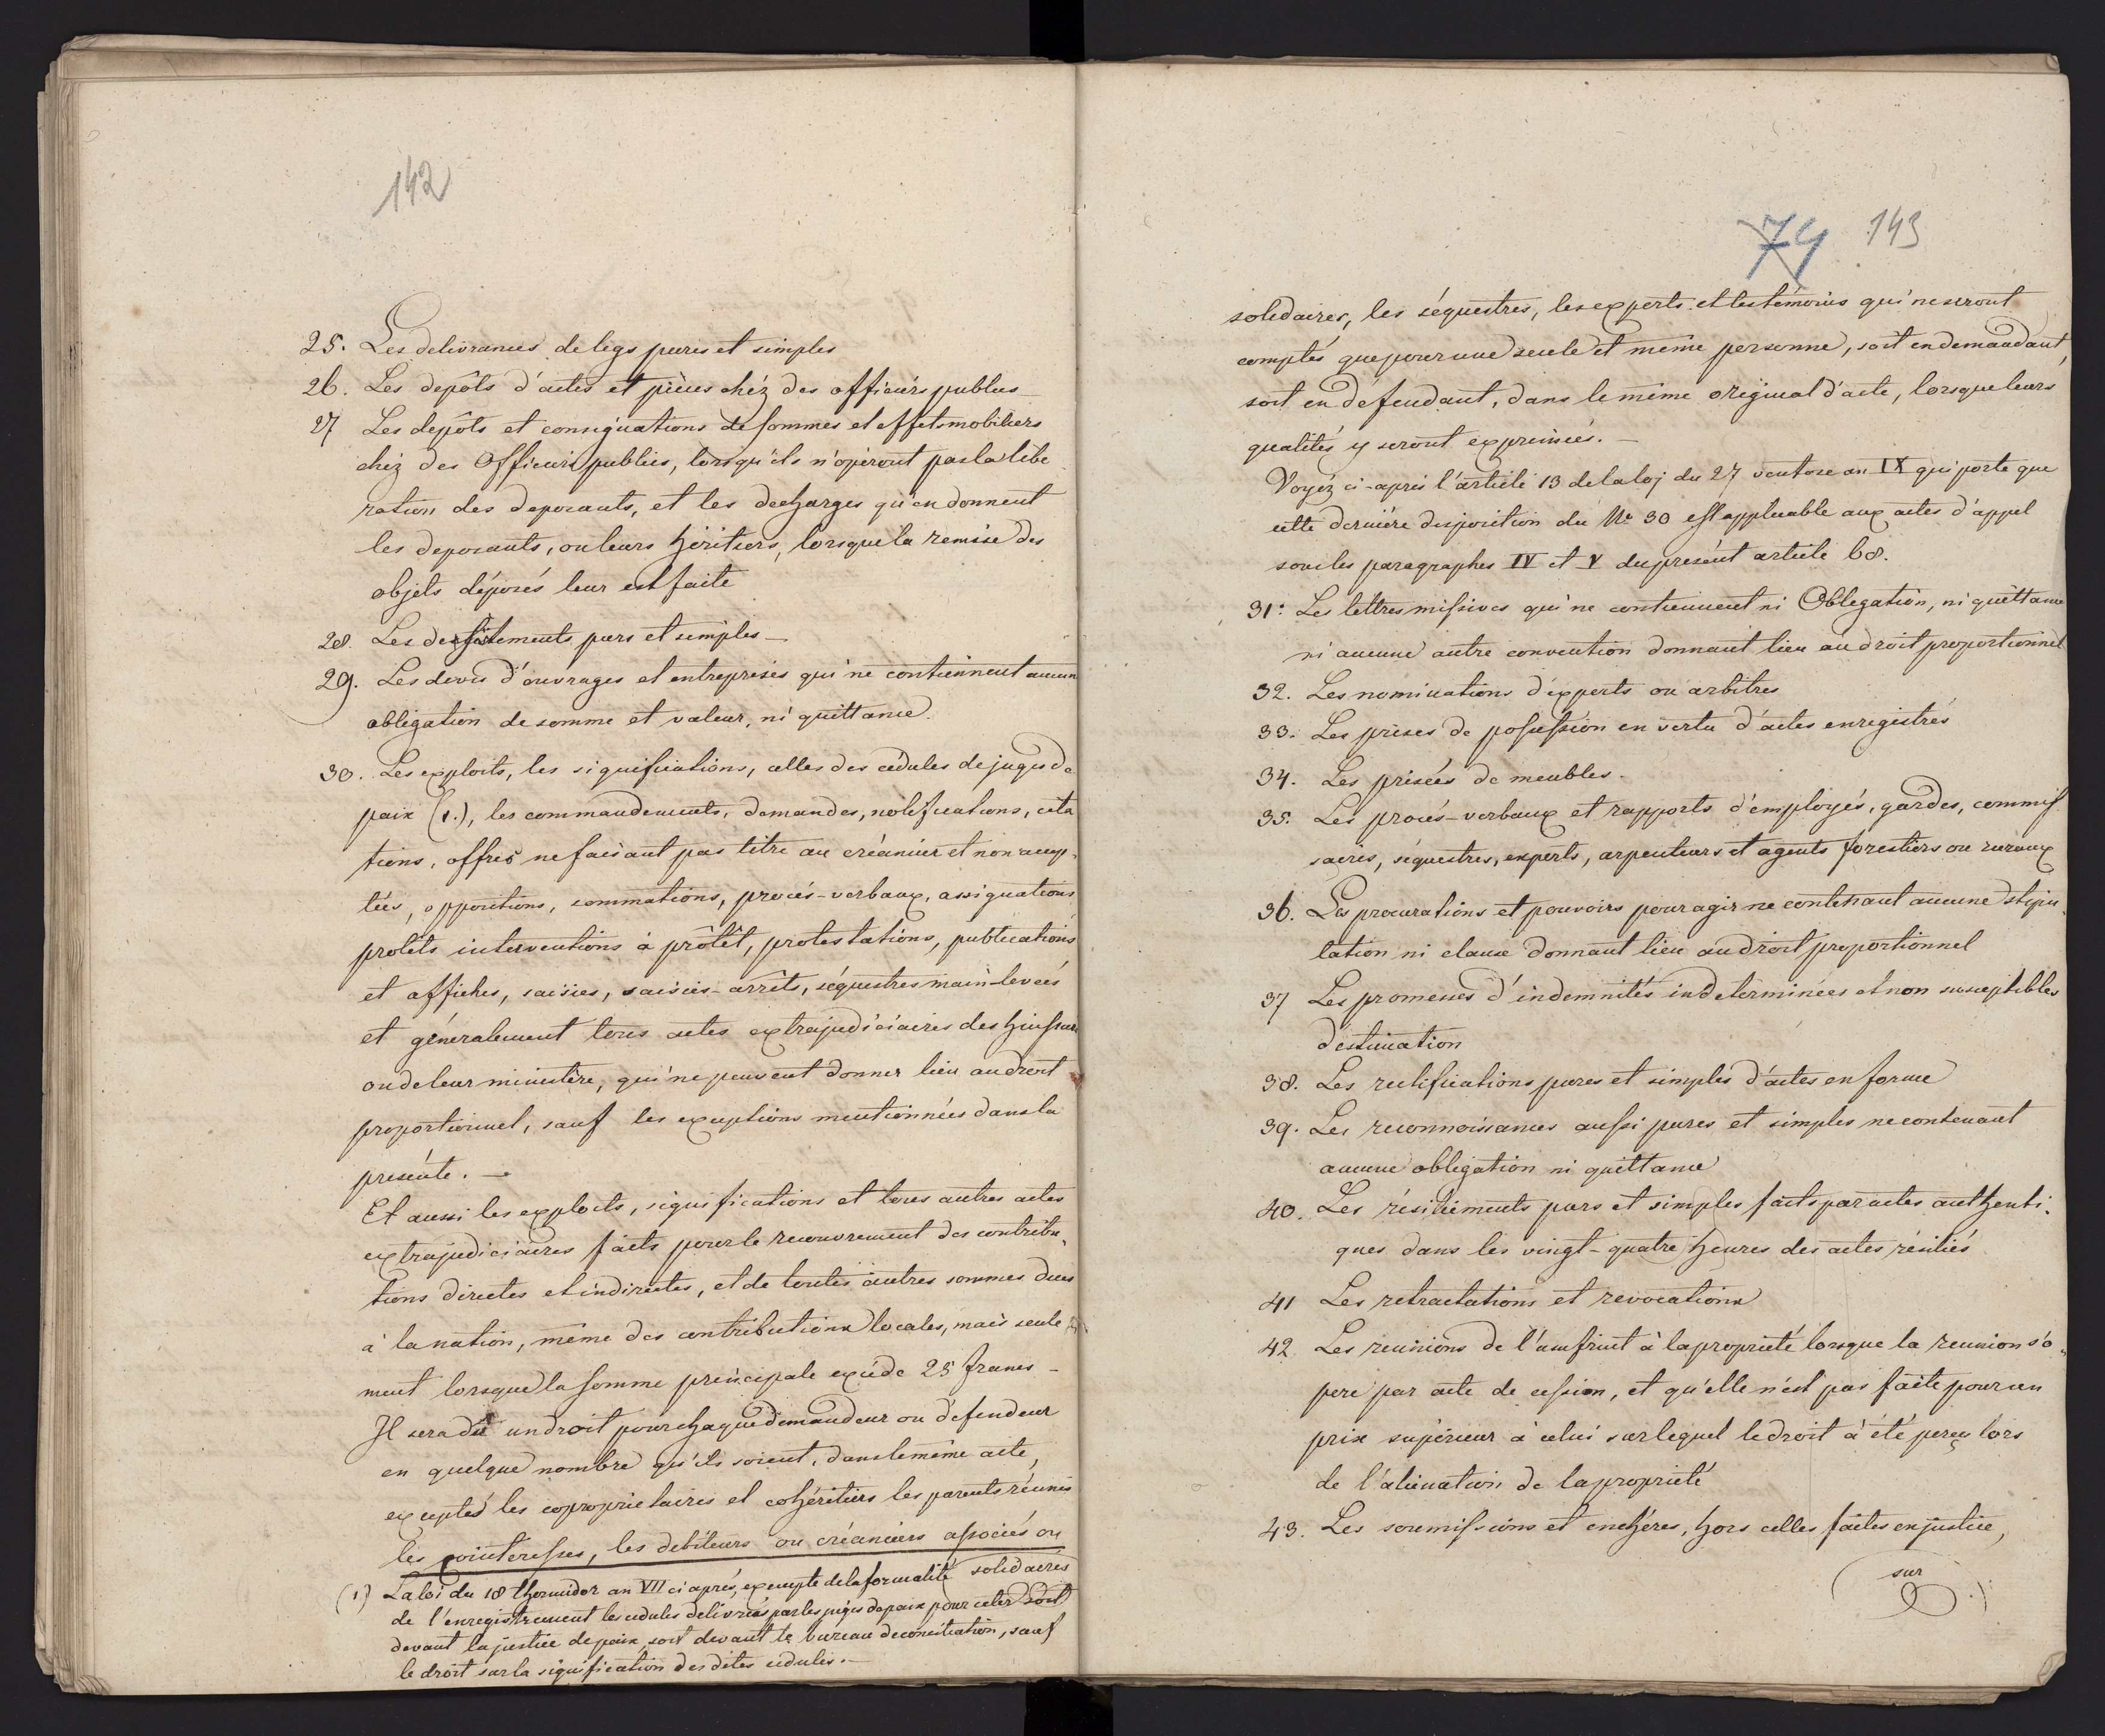 142
25. Les delivrances de legs pures et simples
26. Les depôts d'actes et pièces chéz des officiers publics
27 Les depôts et consignations de sommes et effets mobiliers
chéz des Officiers publics, lorsqu'ils n'opèront pas la libe
ration des deposants, et les decharges qu'en donnent
les deposants, ou leurs héritiers, lorsque la remise des
objets déposés leur est faite
28. Les desistements purs et simples —
29. Les devis d'ouvrages et entreprises qui ne contiennent aucun
obligation de somme et valeur, ni quittance.
30. Les exploits, les significations, celles des cédules de juges de
paix (1.), les commandements, demandes, notifications, cita
tions, offres ne faisant pas titre au créancier et non accep-
tées, oppositions, sommations, procés-verbaux, assignations
protêts interventions à prôtêt, protestations, publications
et affiches, saisies, saisies-arrêts, séquestres main-levées
et généralement tous actes extrajudiciaires des huissiers
ou de leur ministère, qui ne peuvent donner lieu au droit
proportionnel, sauf les exceptions mentionnées dans la
presente. —
Et aussi les exploits, significations et tous autres actes
extrajudiciaires faits pour le recouvrement des contribu-
tions directes et indirectes, et de toutes autres sommes dues
à la nation, même des contributions locales, mais seule
ment lorsque la somme principale excéde 25 francs —
Il sera dû un droit pour chaque demandeur ou défendeur
en quelque nombre qu'ils soient, dans le même acte,
exceptés les coproprietaires et cohéritiers les parents réunis
les cointeresses, les debiteurs ou créanciers associés ou
solidaires
(1) La loi du 18 thermidor an VII ci après, exempte de la formalité
de l'enregistrement les cedules délivrées par les juges de paix pour citer soit
devant la justice de paix, soit devant le bureau de conciliation, sauf
le droit sur la signification des dites cédules. —
74 143
solidaires, les séquestres, les experts et les témoins qui ne seront
comptés que pour une seule et même personne, soit en demandant,
soit en défendant, dans le même original d'acte, lorsque leurs
qualités y seront exprimées. —
Voyéz ci-après l'article 13 de la loj du 27 ventose an IX qui porte que
cette dernière disposition du Nr 30 est applicable aux actes d'appel
sous les paragraphes IV et V du présent article 68.
31. Les lettres missives qui ne contiennent ni Obligation, ni quittance
ni aucune autre convention donnant lieu au droit proportionnel
32. Les nominations d'experts ou arbitres
33. Les prises de possession en vertu d'actes enregistrés
34. Les prisées de meubles.
35. Les procés-verbaux et rapports d'employés, gardes, commis
saires, séquestres, experts, arpenteurs et agents forestiers ou ruraux
36. Les procurations et pouvoirs pour agir ne contenant aucune stipu-
lation ni clause donnant lieu au droit proportionnel
37 Les promesses d'indemnités indeterminées et non susceptibles
d'estimation
38. Les rectifications pures et simples d'actes en forme
39. Les reconnoissances aussi pures et simples ne contenant
aucune obligation ni quittance
40. Les résiliements purs et simples faits par actes authenti-
ques dans les vingt-quatre heures des actes résiliés
41 Les retractations et revocations
42. Les reunions de l'usufruit à la proprieté lorsque la reunion s'o-
pere par acte de cession, et qu'elle n'est pas faite pour un
prix supérieur à celui sur lequel le droit à été perçu lors
de l'alienation de la proprieté
43. Les soumissions et enchères, hors celles faites en justice,
sur